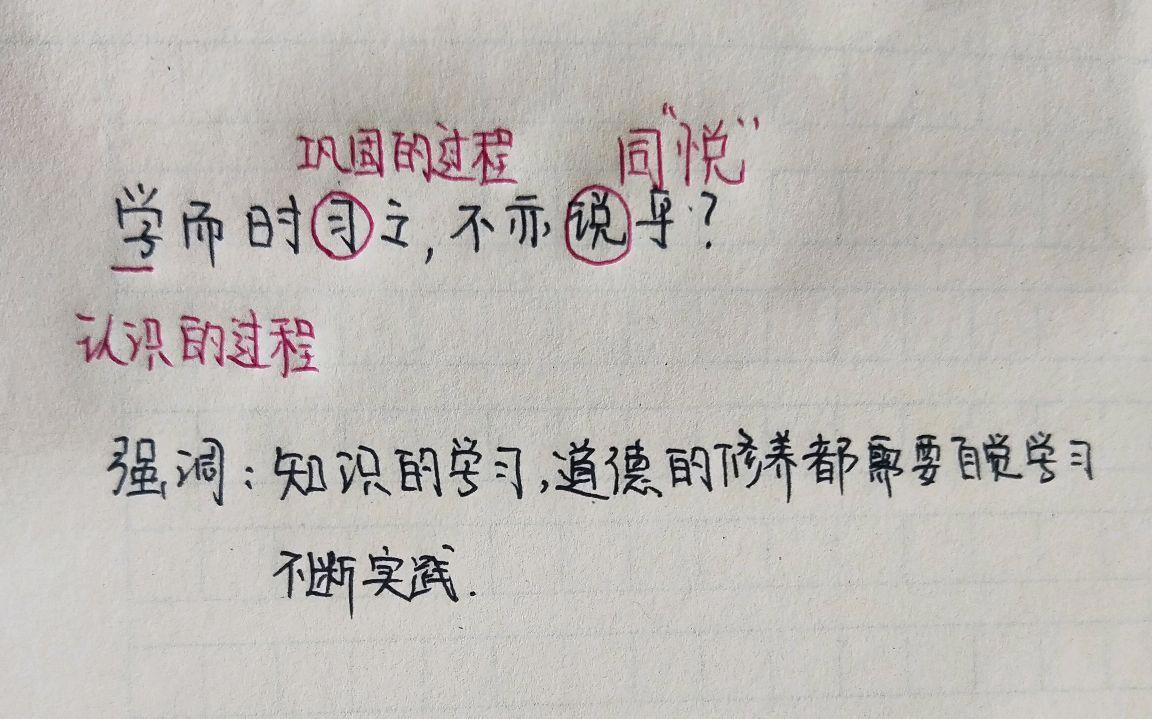 巩固的过程 同“悦”
学而时习之,不亦说乎?
认识的过程
强调:知识的学习,道德的修养都需要自觉学习
不断实践.